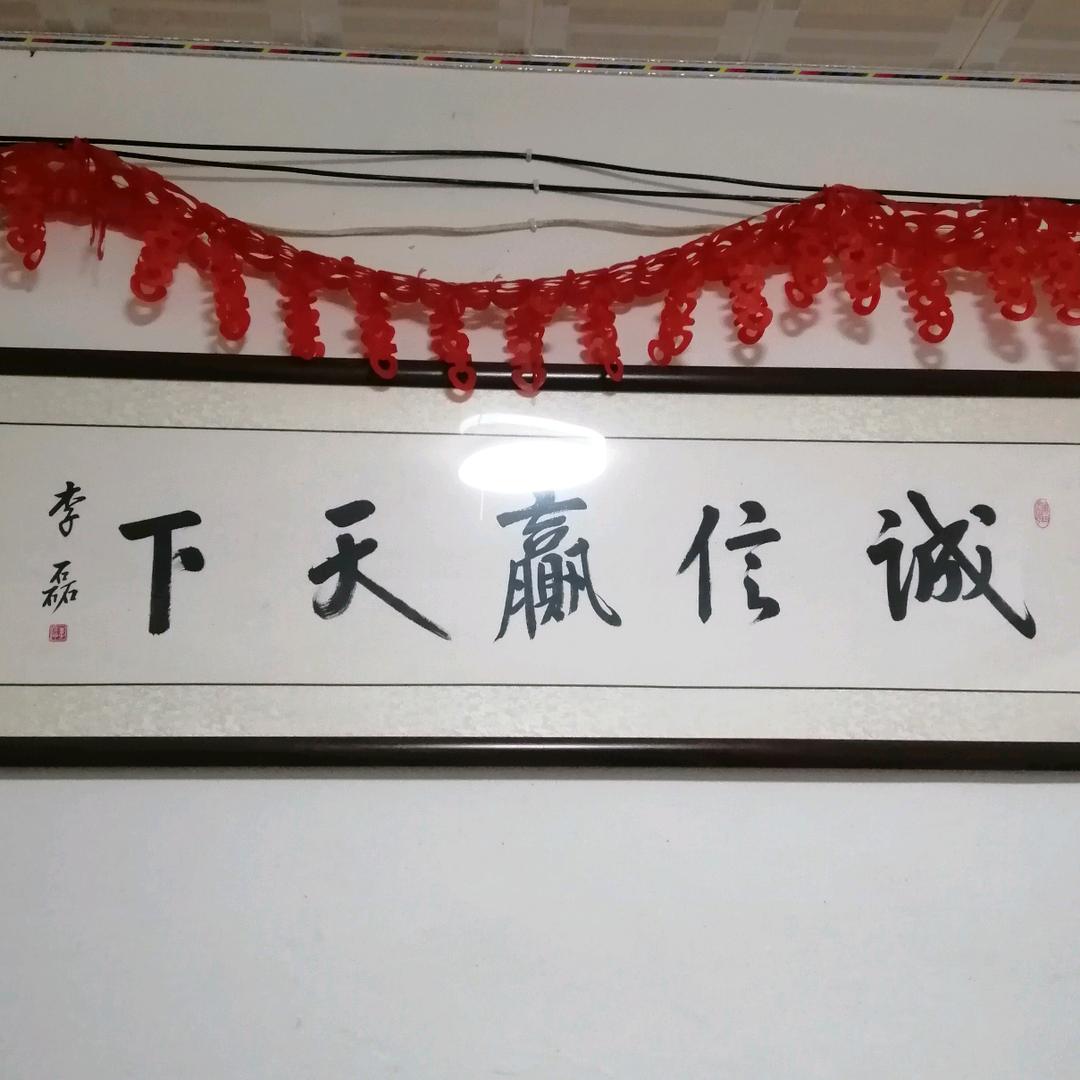 诚信赢天下
李磊